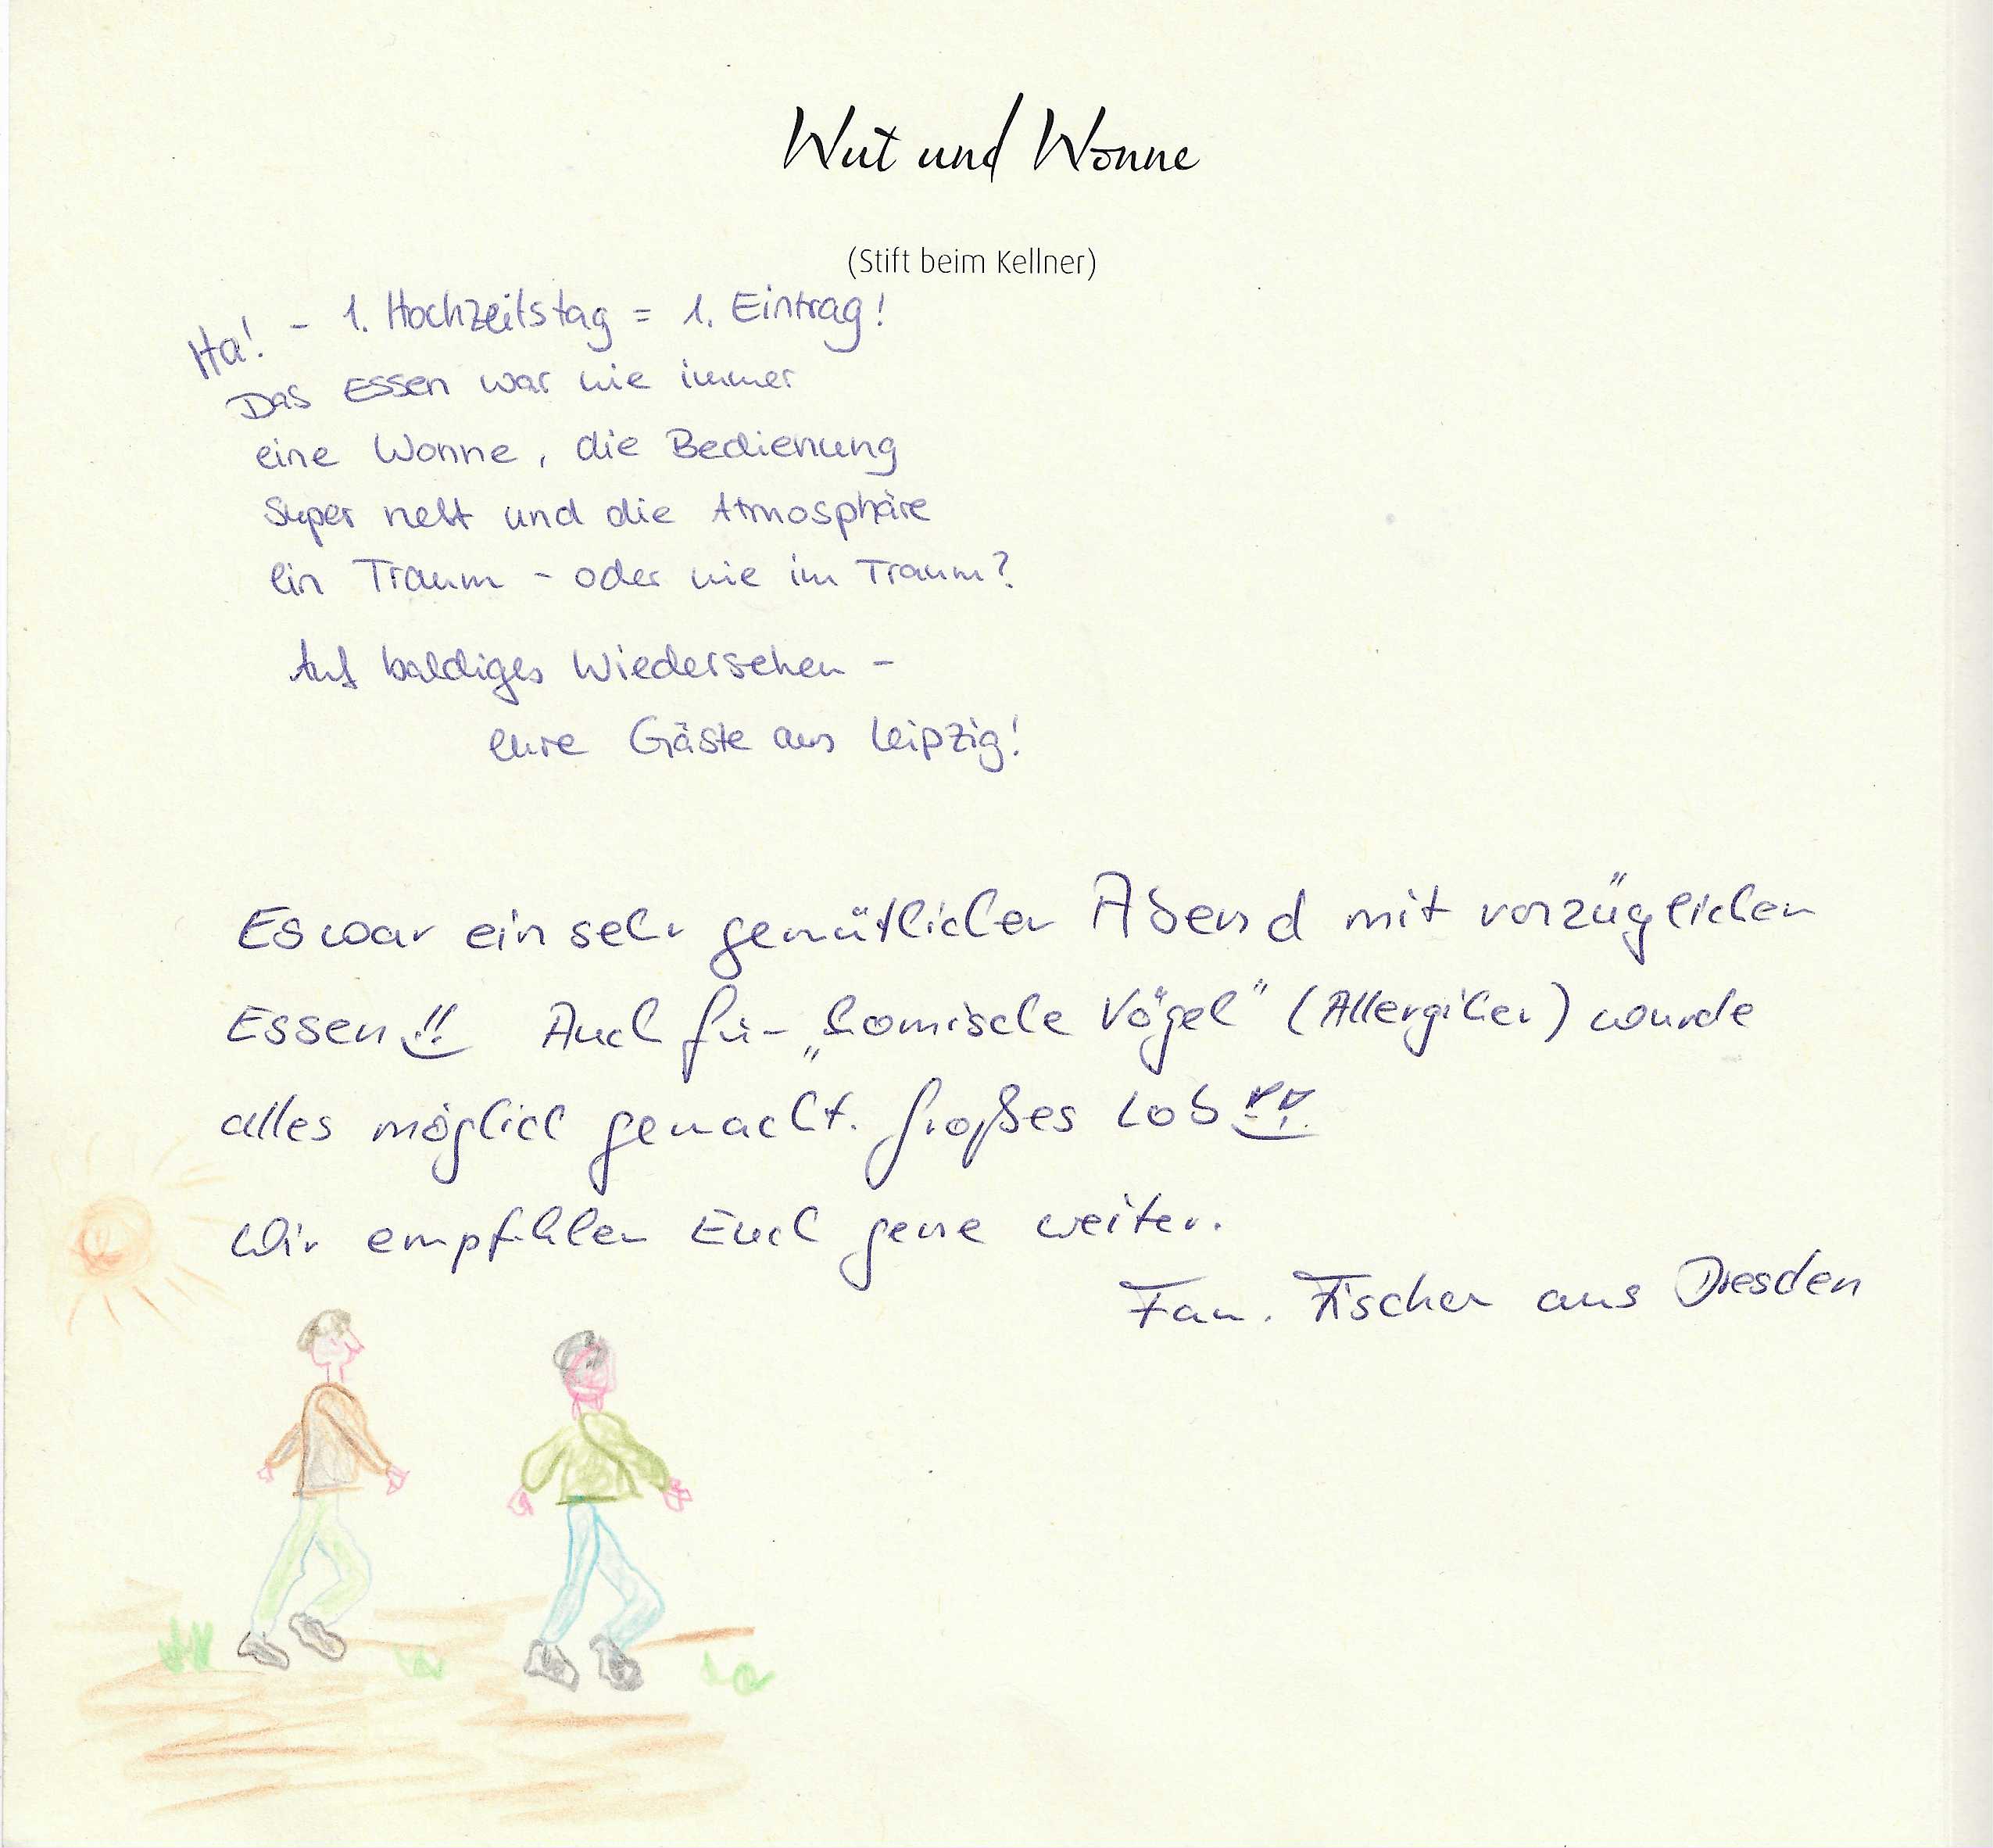 Wut und Wonne
(Stift beim Kellner)
Ha! - 1. Hochzeitstag = 1. Eintrag!
Das Essen war wie immer
eine Wonne, die Bedienung
super nett und die Atmosphäre
ein Traum - oder wie im Traum?
Auf baldiges Wiedersehen -
eure Gäste aus Leipzig!
Es war ein sehr gemütlicher Abend mit vorzüglichen
Essen!! Auch für „komische Vögel" (Allergiker) wurde
alles möglich gemacht. Großes Lob!!
Wir empfehlen Euch gerne weiter.
Fam. Fischer aus Dresden